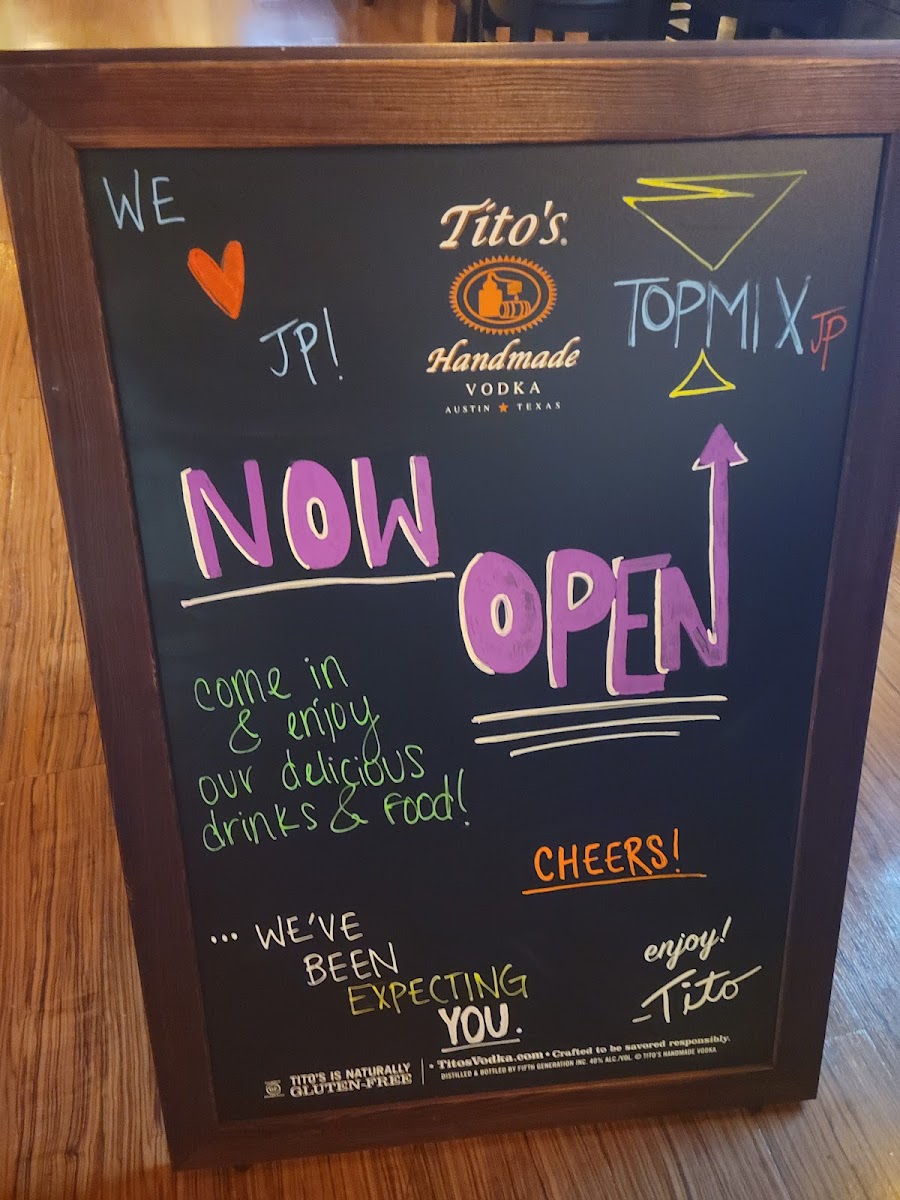 WE
JP!
Tito's
Handmade
VODKA
AUSTIN TEXAS
TOPMIX JP
NOW
OPEN
come in
& enjoy
our delicious
drinks & Food!
CHEERS!
... WE'VE
BEEN
EXPECTING
YOU.
enjoy!
-Tito
TITO'S IS NATURALLY
GLUTEN-FREE
• TitosVodka.com • Crafted to be savored responsibly.
DISTILLED & BOTTLED BY FIFTH GENERATION INC. 40% ALC./VOL. © TITO'S HANDMADE VODKA.